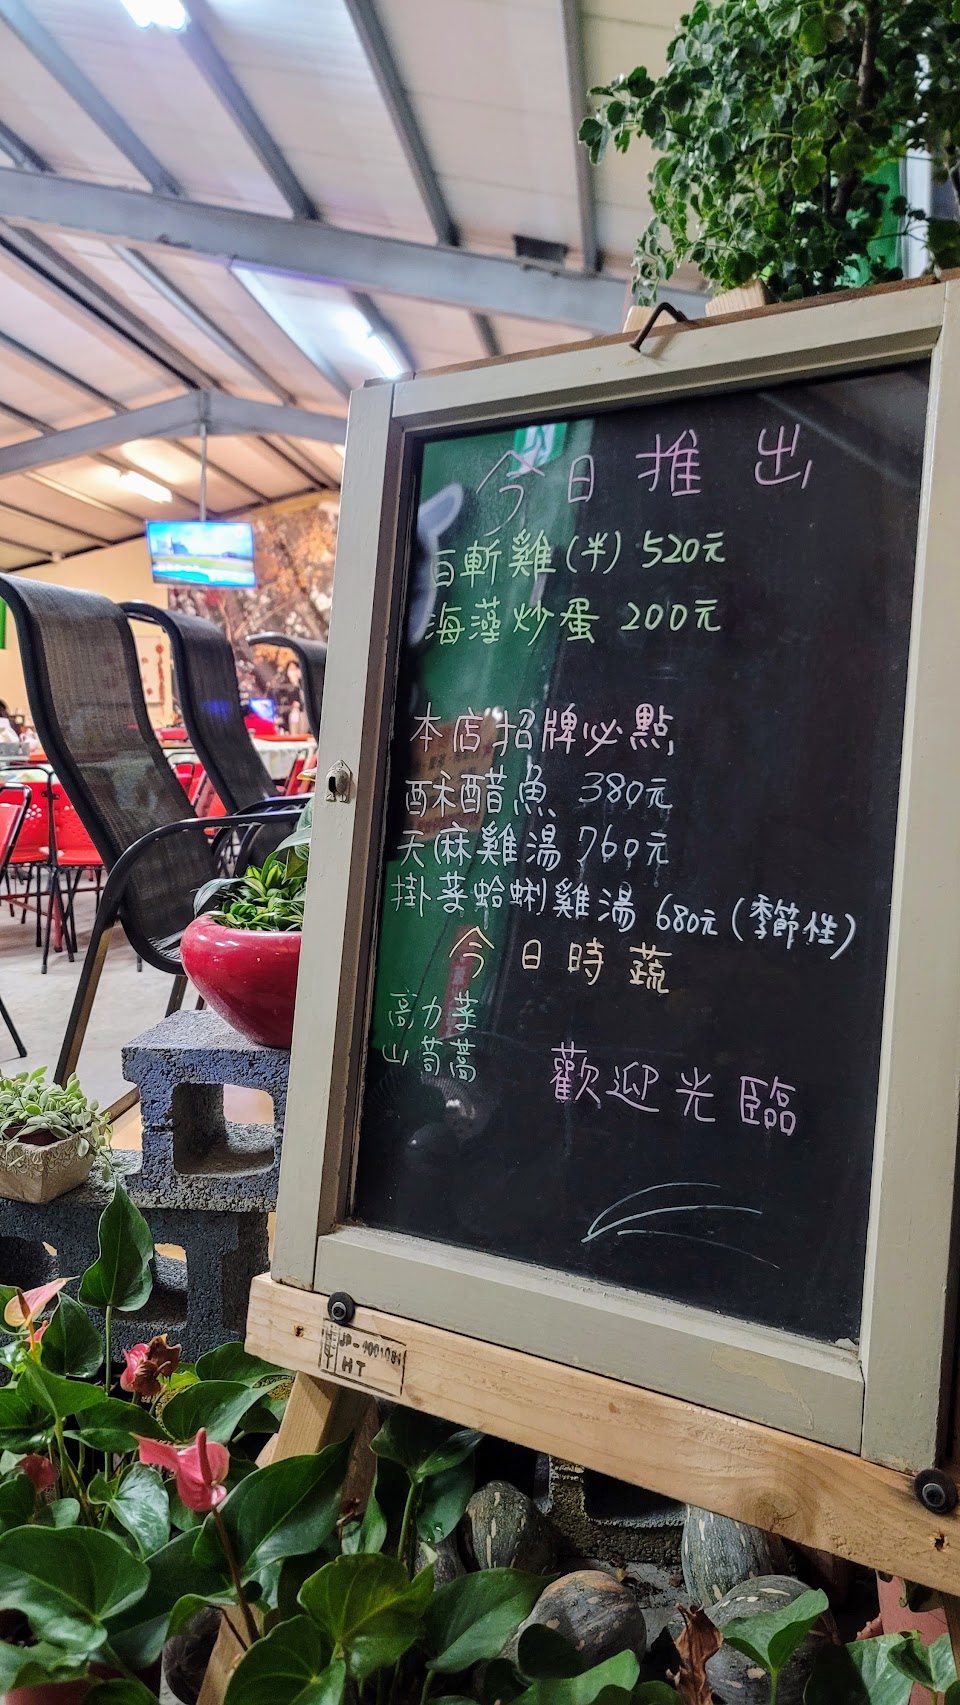 今日推出
白斬雞(半) 520元
海藻炒蛋 200元
本店招牌必點
酥醋魚 380元
天麻雞湯 760元
掛菜蛤蜊雞湯 680元(季節性)
今日時蔬
高力菜
山茼蒿
歡迎光臨
HT